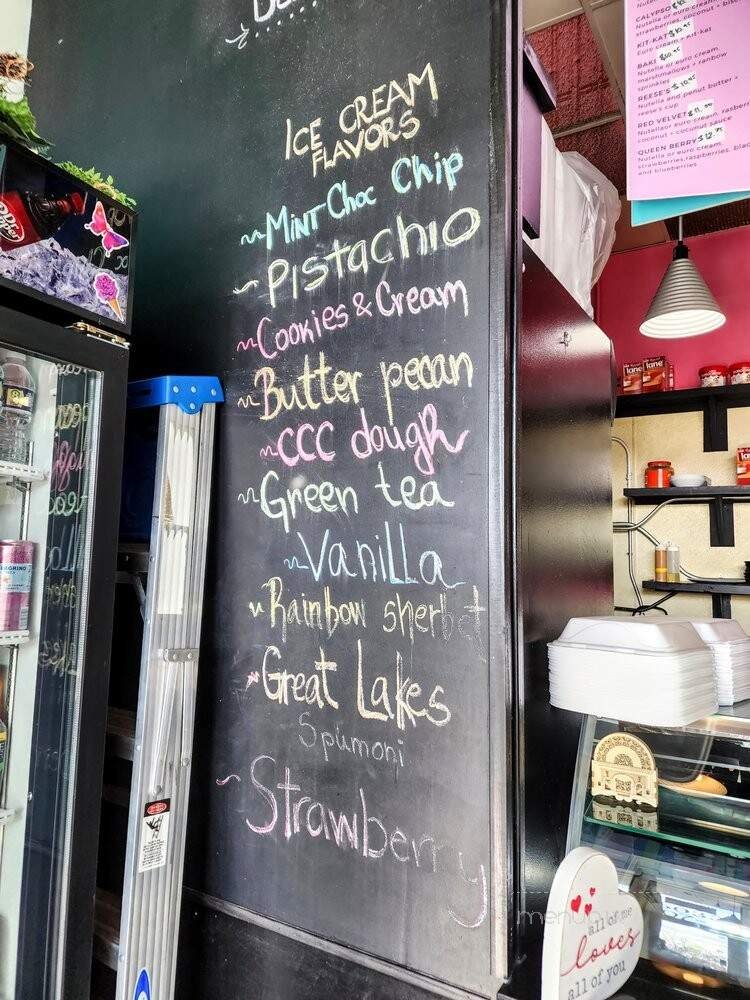 ICE CREAM
FLAVORS
~Mint Choc Chip
~Pistachio
~Cookies & Cream
~Butter pecan
~CCC dough
~Green tea
~Vanilla
~Rainbow sherbet
~Great Lakes
Spumoni
~Strawberry
CALYPSO
strawberries, coconut + bisc
KIT-KAT
Euro cream + Kit-ket
BAKI
Nutella or euro cream,
marshmallows + ranbow
sprinkles
REESE'S $10.95
Nutella and penut butter +
reese's cup
RED VELVET
coconut + coconut sauce
QUEEN BERRY
Nutella or euro cream,
strawberries, raspberries, blac
and blueberries
lane
all of me
loves
all of you
menu